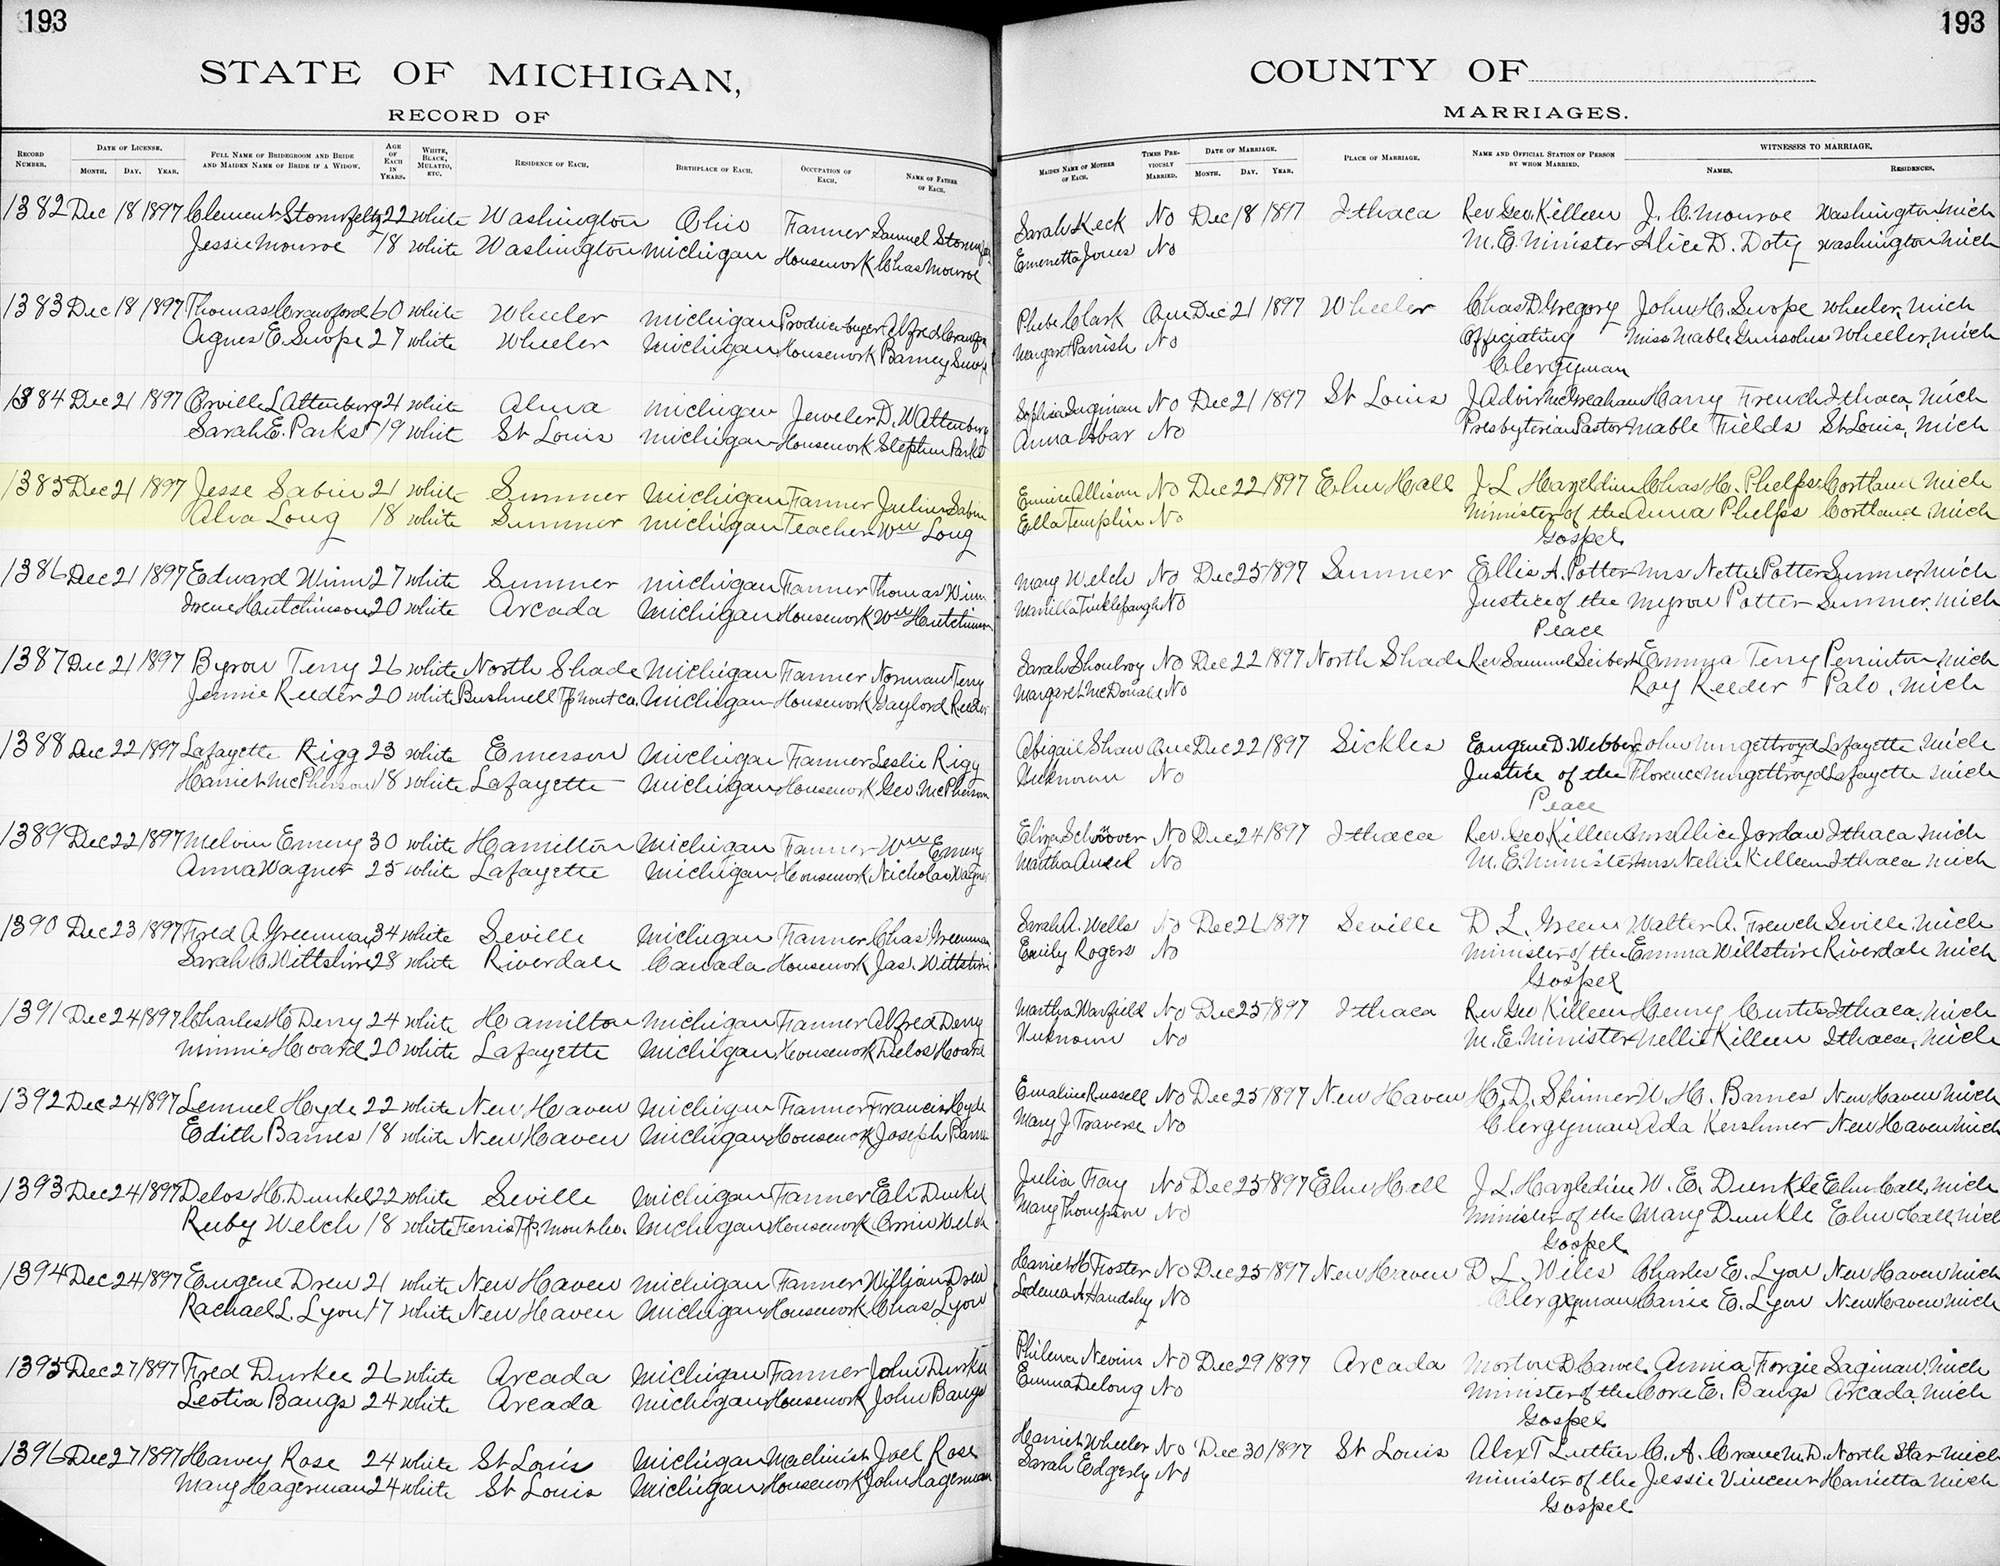 193
193
STATE OF MICHIGAN,
COUNTY OF
RECORD OF
MARRIAGES.
RECORD NUMBER. DATE OF LICENSE. MONTH. DAY. YEAR. FULL NAME OF BRIDEGROOM AND BRIDE AND MAIDEN NAME OF BRIDE IF A WIDOW. AGE OF EACH IN YEARS. WHITE, BLACK, MULATTO, ETC. RESIDENCE OF EACH. BIRTHPLACE OF EACH. OCCUPATION OF EACH. NAME OF FATHER OF EACH. MAIDEN NAME OF MOTHER OF EACH. TIMES PREVIOUSLY MARRIED. DATE OF MARRIAGE. MONTH. DAY. YEAR. PLACE OF MARRIAGE. NAME AND OFFICIAL STATION OF PERSON BY WHOM MARRIED. WITNESSES TO MARRIAGE. NAMES. RESIDENCES.
1382 Dec 18 1897 Clement Stomsfeltz 22 white Washington Ohio Farmer Samuel Sarah Keck No Dec 18 1897 Ithaca Rev Geo. Killeen J. C. Monroe Washington Mich
Jessie Monroe 18 white Washington Michigan Housework Chas Monroe Emenetta Jones No M. E. Minister Alice D. Doty Washington Mich
1383 Dec 18 1897 Thomas Crawford 60 white Wheeler Michigan Produce buyer Alfred Phebe Clark One Dec 21 1897 Wheeler Chas D. Gregory John H. Swope Wheeler, Mich
Agnes E. Swope 27 white Wheeler Michigan Housework Barney Swope Margaret Parrish No Officiating Miss Mable Wheeler, Mich
Clergyman
1384 Dec 21 1897 Orville L Attenburg 21 white Alma Michigan Jeweler D. W Attenburg Sophia No Dec 21 1897 St Louis J. Harry French Ithaca, Mich
Sarah E. Parks 19 whit St Louis Michigan Housework Stephen Parks Anna No Presbyterian Pastor Mable Fields St Louis, Mich
1385 Dec 21 1897 Jesse Sabin 21 white Sumner Michigan Farmer Julius Sabin Eunice Allison No Dec 22 1897 Elm Hall J. L Hazeldine Chas H. Phelps Cortland Mich
Alva Long 18 white Sumner Michigan Teacher Wm Long Ella Templin No Minister of the Anna Phelps Cortland Mich
Gospel
1386 Dec 21 1897 Edward Winn 27 white Sumner Michigan Farmer Thomas Winn Mary Welch No Dec 25 1897 Sumner Ellis A. Potter Mrs Nettie Potter Sumner, Mich
Irene Hutchinson 20 white Arcada Michigan Housework Wm Hutchinson No Justice of the Myron Potter Sumner, Mich
Peace
1387 Dec 21 1897 Byron Terry 26 white North Shade Michigan Farmer Norman Terry Sarah No Dec 22 1897 North Shade Rev Samuel Seibert Emma Terry Perrinton, Mich
Jennie Reeder 20 white Bushnell Tp Mont Co. Michigan Housework Gaylord Reeder Margaret McDonald No Roy Reeder Palo, Mich
1388 Dec 22 1897 Lafayette Rigg 23 white Emerson Michigan Farmer Leslie Rigg Abigail Shaw One Dec 22 1897 Sickles Eugene D. Webber John Lafayette Mich
Harriet McPherson 18 white Lafayette Michigan Housework Geo. McPherson Unknown No Justice of the Florence Lafayette Mich
Peace
1389 Dec 22 1897 Melvin Emery 30 white Hamilton Michigan Farmer Wm Emery Eliza Schoover No Dec 24 1897 Ithaca Rev. Geo Killeen Mrs Alice Jordan Ithaca Mich
Anna Wagner 25 white Lafayette Michigan Housework Nicholas Wagner Martha No M. E. Minister Mrs Nellie Killeen Ithaca Mich
1390 Dec 23 1897 Fred A. Greenman 34 white Seville Michigan Farmer Chas Greenman Sarah A. Wells No Dec 26 1897 Seville D. L. Green Walter A. French Seville Mich
Sarah C. Wiltshire 28 white Riverdale Canada Housework Jas. Wiltshire Emily Rogers No Minister of the Emma Wiltshire Riverdale Mich
Gospel
1391 Dec 24 1897 Charles H. Derry 24 white Hamilton Michigan Farmer Alfred Derry Martha Warfield No Dec 25 1897 Ithaca Rev Geo Killeen Henry Curtis Ithaca, Mich
Minnie Hoard 20 white Lafayette Michigan Housework Delos Hoard Unknown No M. E. Minister Nellie Killeen Ithaca, Mich
1392 Dec 24 1897 Lemuel Hyde 22 white New Haven Michigan Farmer Francis Hyde Emaline Russell No Dec 25 1897 New Haven H. D. Skinner W. H. Barnes New Haven Mich
Edith Barnes 18 white New Haven Michigan Housework Joseph Barnes Mary J Traverse No Clergyman Ada Kershner New Haven Mich
1393 Dec 24 1897 Delos H. Dunkel 22 white Seville Michigan Farmer Eli Dunkel Julia Fay No Dec 25 1897 Elm Hall J. L. Hazledine W. E. Dunkle Elm Hall, Mich
Ruby Welch 18 white Ferris Tp. Mont. Co. Michigan Housework Orrin Welch Mary Thompson No Minister of the Mary Dunkle Elm Hall, Mich
Gospel
1394 Dec 24 1897 Eugene Drew 21 white New Haven Michigan Farmer William Drew Harriet H Froster No Dec 25 1897 New Haven D. L. Wiles Charles E. Lyon New Haven Mich
Rachael L. Lyon 17 white New Haven Michigan Housework Chas Lyon Lodema A Handsby No Clergyman Carrie E. Lyon New Haven Mich
1395 Dec 27 1897 Fred Durkee 26 white Arcada Michigan Farmer John Durkee Philena Nevins No Dec 29 1897 Arcada Morton D. Carrel Annia Forgie Saginaw, Mich
Leotia Bangs 24 white Arcada Michigan Housework John Bangs Emma Delong No Minister of the Cora E. Bangs Arcada, Mich
Gospel
1396 Dec 27 1897 Harvey Rose 24 white St Louis Michigan Machinist Joel Rose Harriet Wheeler No Dec 30 1897 St Louis Alex T Luther C. A. Crave M.D. North Star Mich
Mary Hagerman 24 white St Louis Michigan Housework John Hagerman Sarah Edgerly No Minister of the Jessie Vincent Harrietta Mich
Gospel